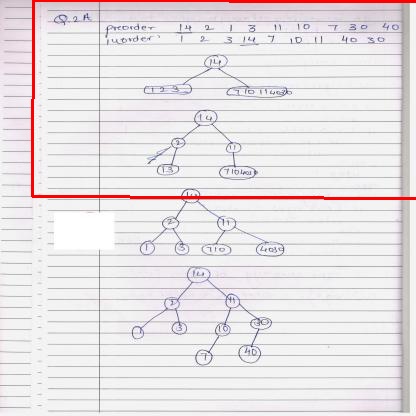 Q.2A
preorder 14 2 1 3 11 10 7 30 40
inorder: 1 2 3 14 7 10 11 40 30
14
1 2 3 7 10 11 40 30
14
2 11
1 3 7 10 40 30
14
2 11
1 3 7 10 40 30
14
2 11
1 3 10 30
7 40